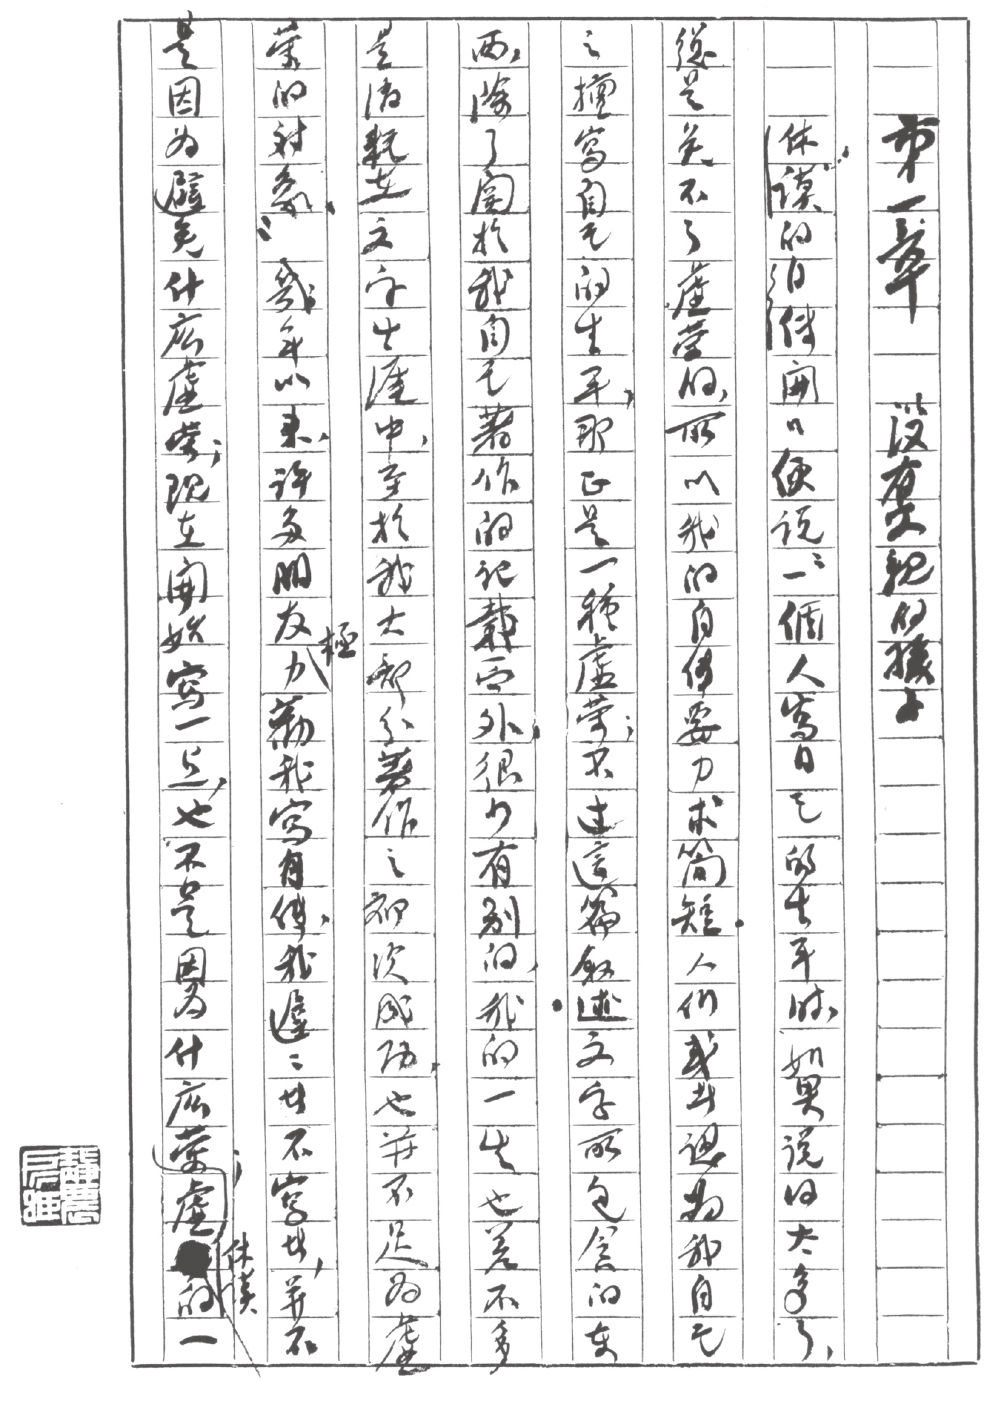 第一章　没有父親的孩子
休謨的自傳開口便说：「一個人寫自己的生平時，如果说得太多了，
總是免不了虛榮的，所以我的自傳要力求簡短，人们或者認为我自己
之擅寫自己的生平，那正是一種虛榮；不过這篇敘述文字所包含的東
西，除了関於我自己著作的记載而外，很少有别的，我的一生也差不多
是消耗在文字生涯中，至於我大部分著作之初次成功，也并不足为虛
荣的对象。」幾年以来，许多朋友極力勸我寫自傳，我遲遲者不寫者，并不
是因为避免什庅虛荣；现在開始寫一点，也不是因为什庅虛荣；休謨的一